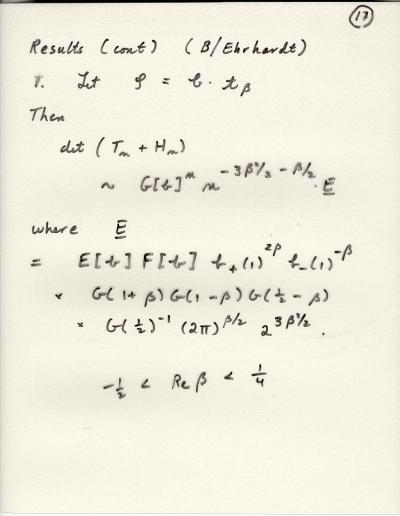 17
Results (cont) (B/Ehrhardt)
1. Let φ = b · t_β
Then
det (T_n + H_n)
~ G[b]^n n^{-3β²/2 - β/2} · E
where E
= E[b] F[b] b_+(1)^{2β} b_-(1)^{-β}
× G(1+β) G(1-β) G(½-β)
× G(½)^{-1} (2π)^{β/2} 2^{3β²/2} .
-½ < Re β < ¼